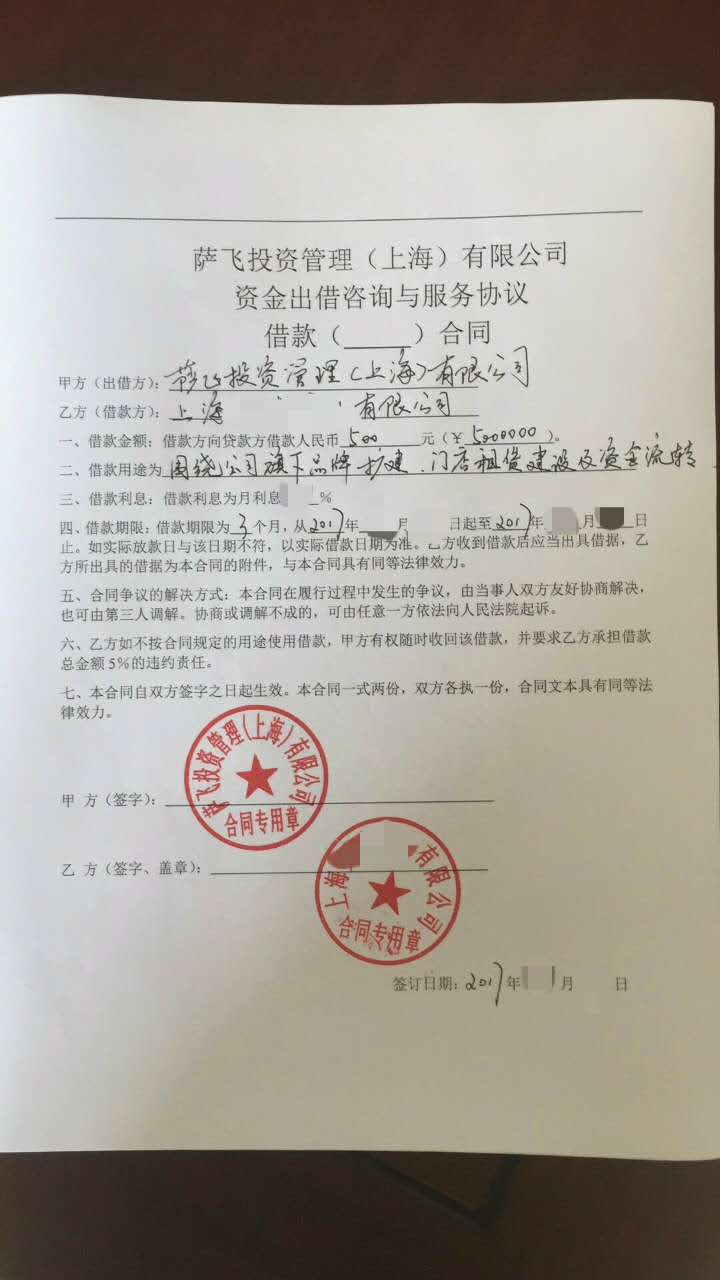 萨飞投资管理（上海）有限公司
资金出借咨询与服务协议
借款（____）合同
甲方（出借方）：萨飞投资管理（上海）有限公司
乙方（借款方）：上海 有限公司
一、借款金额：借款方向贷款方借款人民币 500 元（￥ 5000000 ）。
二、借款用途为 围绕公司旗下品牌扩建、门店租赁建设及资金流转
三、借款利息：借款利息为月利息 %
四、借款期限：借款期限为 3 个月，从 2017 年 月 日起至 2017 年 月 日
止。如实际放款日与该日期不符，以实际借款日期为准。乙方收到借款后应当出具借据，乙
方所出具的借据为本合同的附件，与本合同具有同等法律效力。
五、合同争议的解决方式：本合同在履行过程中发生的争议，由当事人双方友好协商解决，
也可由第三人调解。协商或调解不成的，可由任意一方依法向人民法院起诉。
六、乙方如不按合同规定的用途使用借款，甲方有权随时收回该借款，并要求乙方承担借款
总金额 5%的违约责任。
七、本合同自双方签字之日起生效。本合同一式两份，双方各执一份，合同文本具有同等法
律效力。
萨飞投资管理（上海）有限公司
甲 方（签字）：
合同专用章
乙 方（签字、盖章）：
上海 有限公司
合同专用章
签订日期：2017 年 月 日